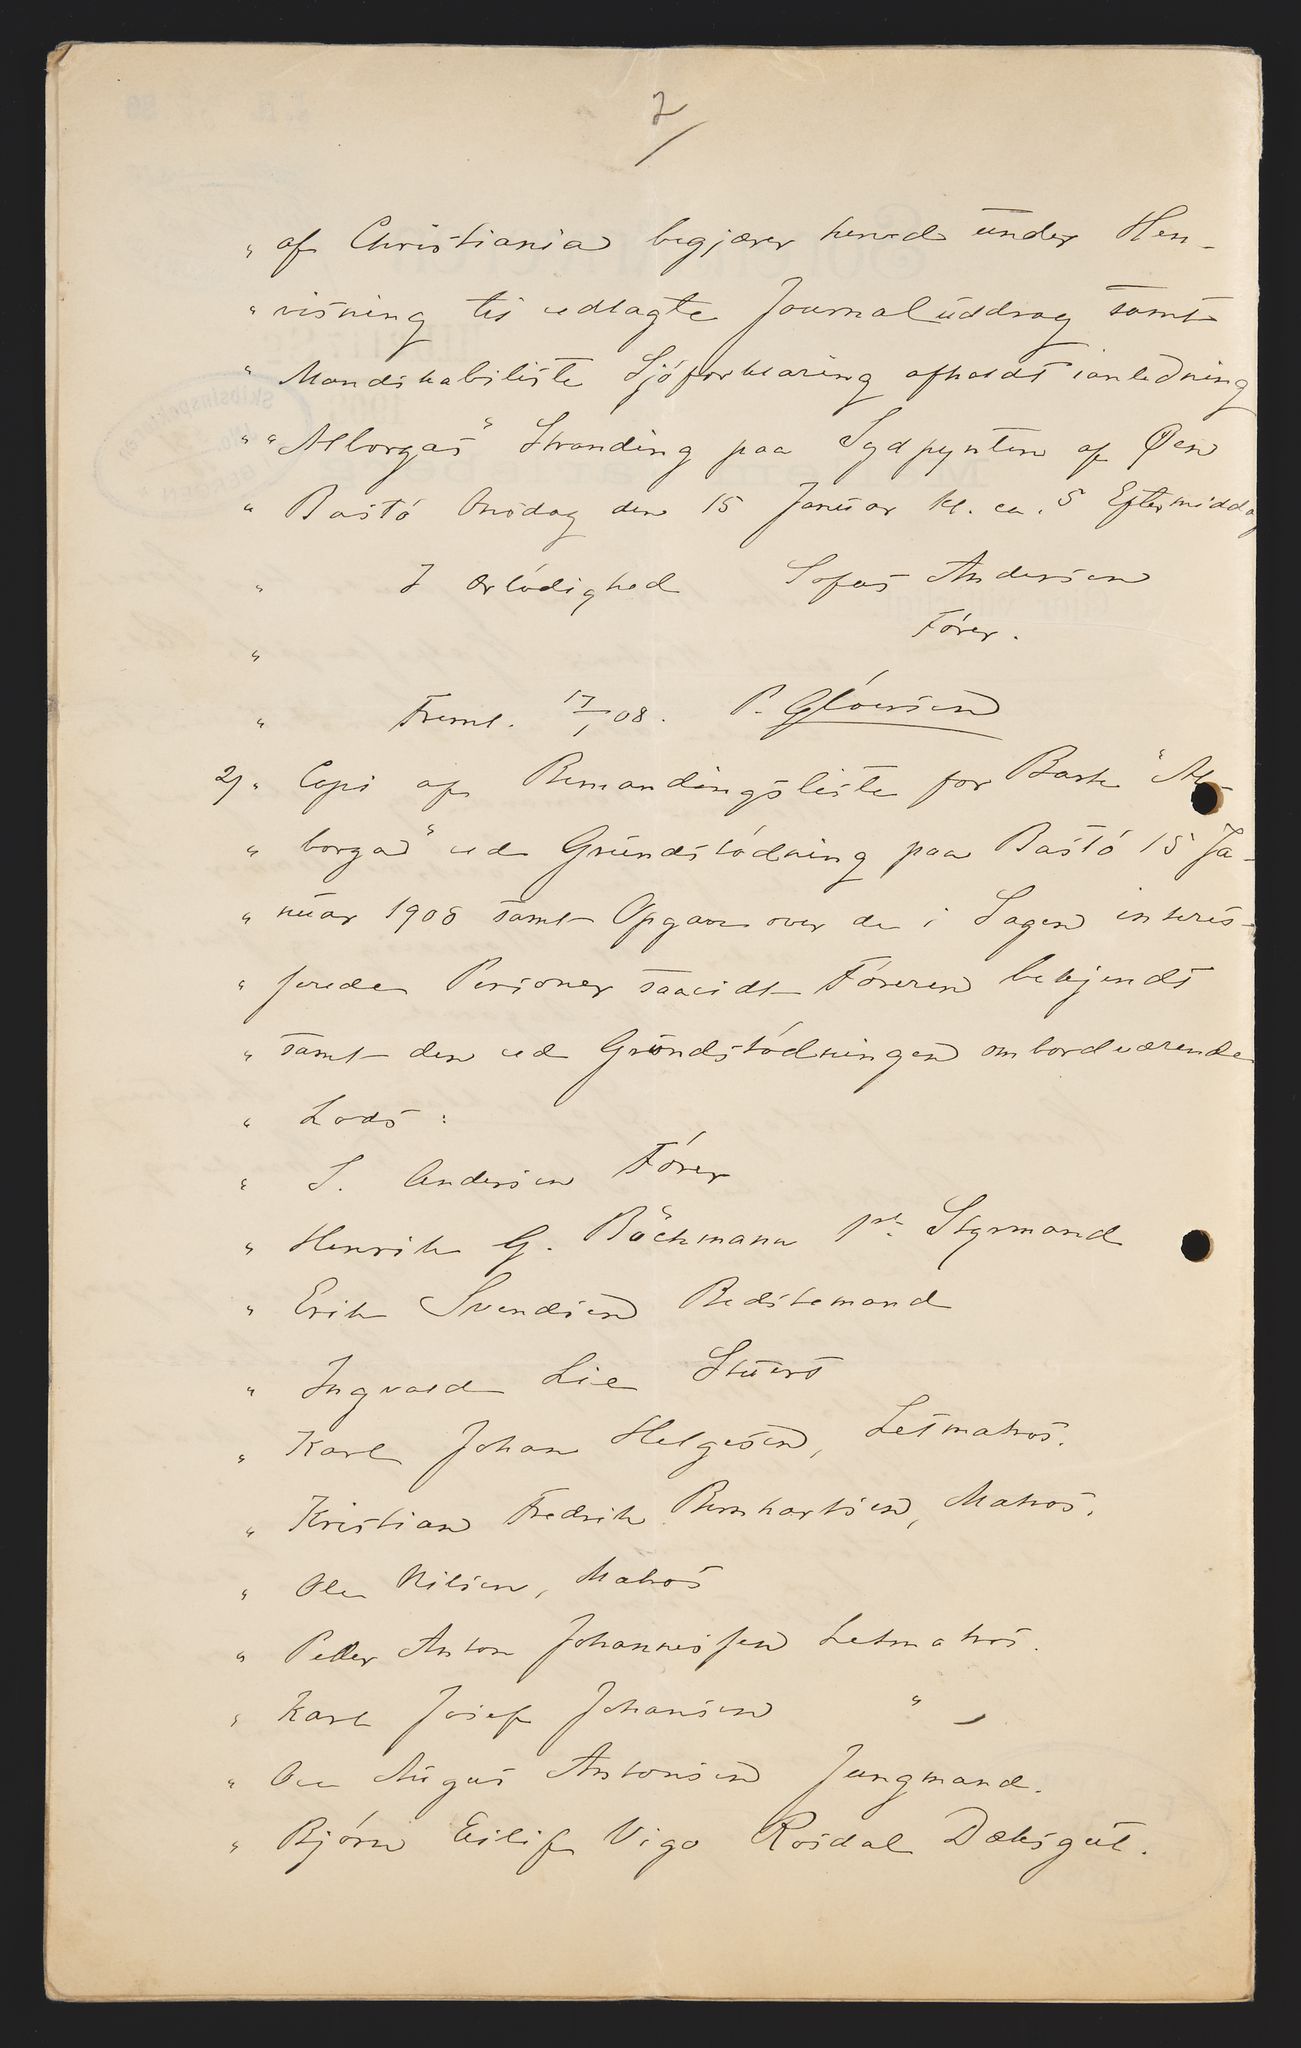 2/
" af Christiania begjærer herved under Hen-
" visning til vedlagte Journaluddrag samt
" Mandskabsliste Sjøforklaring afholdt ianledning
" "Alborgas" Stranding paa Sydpynten af Øen
" Bastø Onsdag den 15 Januar kl. ca. 5 Eftermiddag
" I ærbødighed Sofus Andersen
" Fører.
" Freml. 17/1 08. P. Gløersen
2) " Copi af Bemandingsliste for Bark "Al-
" borga" ved Grundstødning paa Bastø 15 Ja-
" nuar 1908 samt Opgave over de i Sagen interes-
" serede Personer saavidt Føreren bekjendt
" samt den ved Grundstødningen ombordværende
" Lods:
" S. Andersen Fører
" Henrik G. Böckmann 1ste Styrmand
" Erik Svendsen Bedstemand
" Ingvald Lie Stuert
" Karl Johan Helgesen, Letmatros.
" Kristian Fredrik Bernhartsen, Matros.
" Ole Nilsen, Matros
" Peder Anton Johannessen Letmatros.
" Karl Josef Johansen "
" Ole August Antonsen Jungmand.
" Bjørn Eilif Vigo Rosdal Dæksgut.